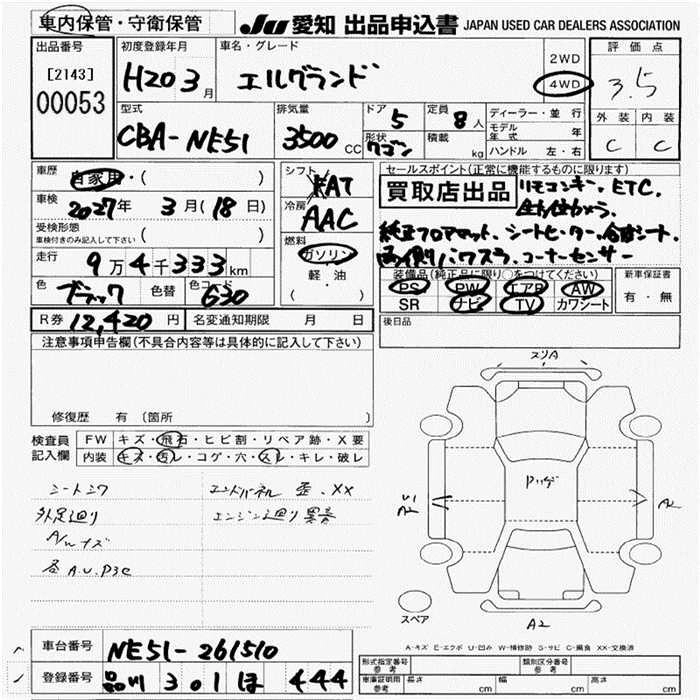 車内保管・守衛保管
JU 愛知 出品申込書 JAPAN USED CAR DEALERS ASSOCIATION
出品番号
[2143]
00053
初度登録年月
H20 3月
車名・グレード
エルグランド
2WD
4WD
評価点
3.5
外装 内装
C C
型式
CBA-NE51
排気量
3500 CC
ドア 5
形状 ワゴン
定員 8人
積載 kg
ディーラー・並行
モデル年式 年
ハンドル 左・右
車歴 自家用・( )
車検 2027年 3月(18日)
受検形態
車検付きのみ記入して下さい ( )
走行 9万4千333km
色 ブラック 色替 色コード G30
シフト FAT
冷房 AAC
燃料
ガソリン
軽・油
( )
セールスポイント(正常に機能するものに限ります)
買取店出品 リモコンキー、ETC、
純正フロアマット、シートヒーター、合皮シート、
両側パワスラ、コーナーセンサー
装備品(純正品に限り○をつけてください)
PS PW エアB AW
SR ナビ TV カワシート
新車保証書
有・無
R券 12,420円 名変通知期限 月 日
後日品
注意事項申告欄(不具合内容等は具体的に記入して下さい)
修復歴 有 (箇所
検査員記入欄
FW キズ・飛石・ヒビ割・リペア跡・X要
内装 キズ・汚レ・コゲ・穴・スレ・キレ・破レ
シートシワ
外足廻り
A/Wキズ
各A.U.P3C
エンドパネル 歪、XX
エンジン廻り異音
スリA
U1
A2
A2
A2
スペア
A-キズ E-エクボ U-凹み W-補修跡 S-サビ C-腐食 XX-交換済
車台番号 NE51-261510
登録番号 品川 301 ほ 444
形式指定番号 参考
類別区分番号 参考
車庫証明用 参考 長さ cm 幅 cm 高さ cm